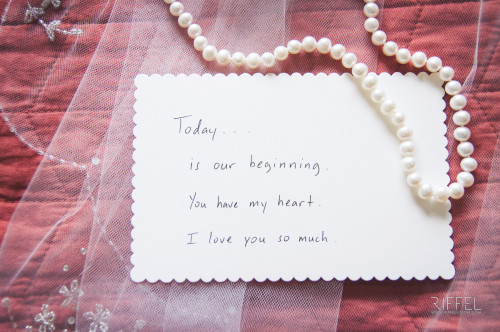 Today...
is our beginning.
You have my heart.
I love you so much.
RIFFEL